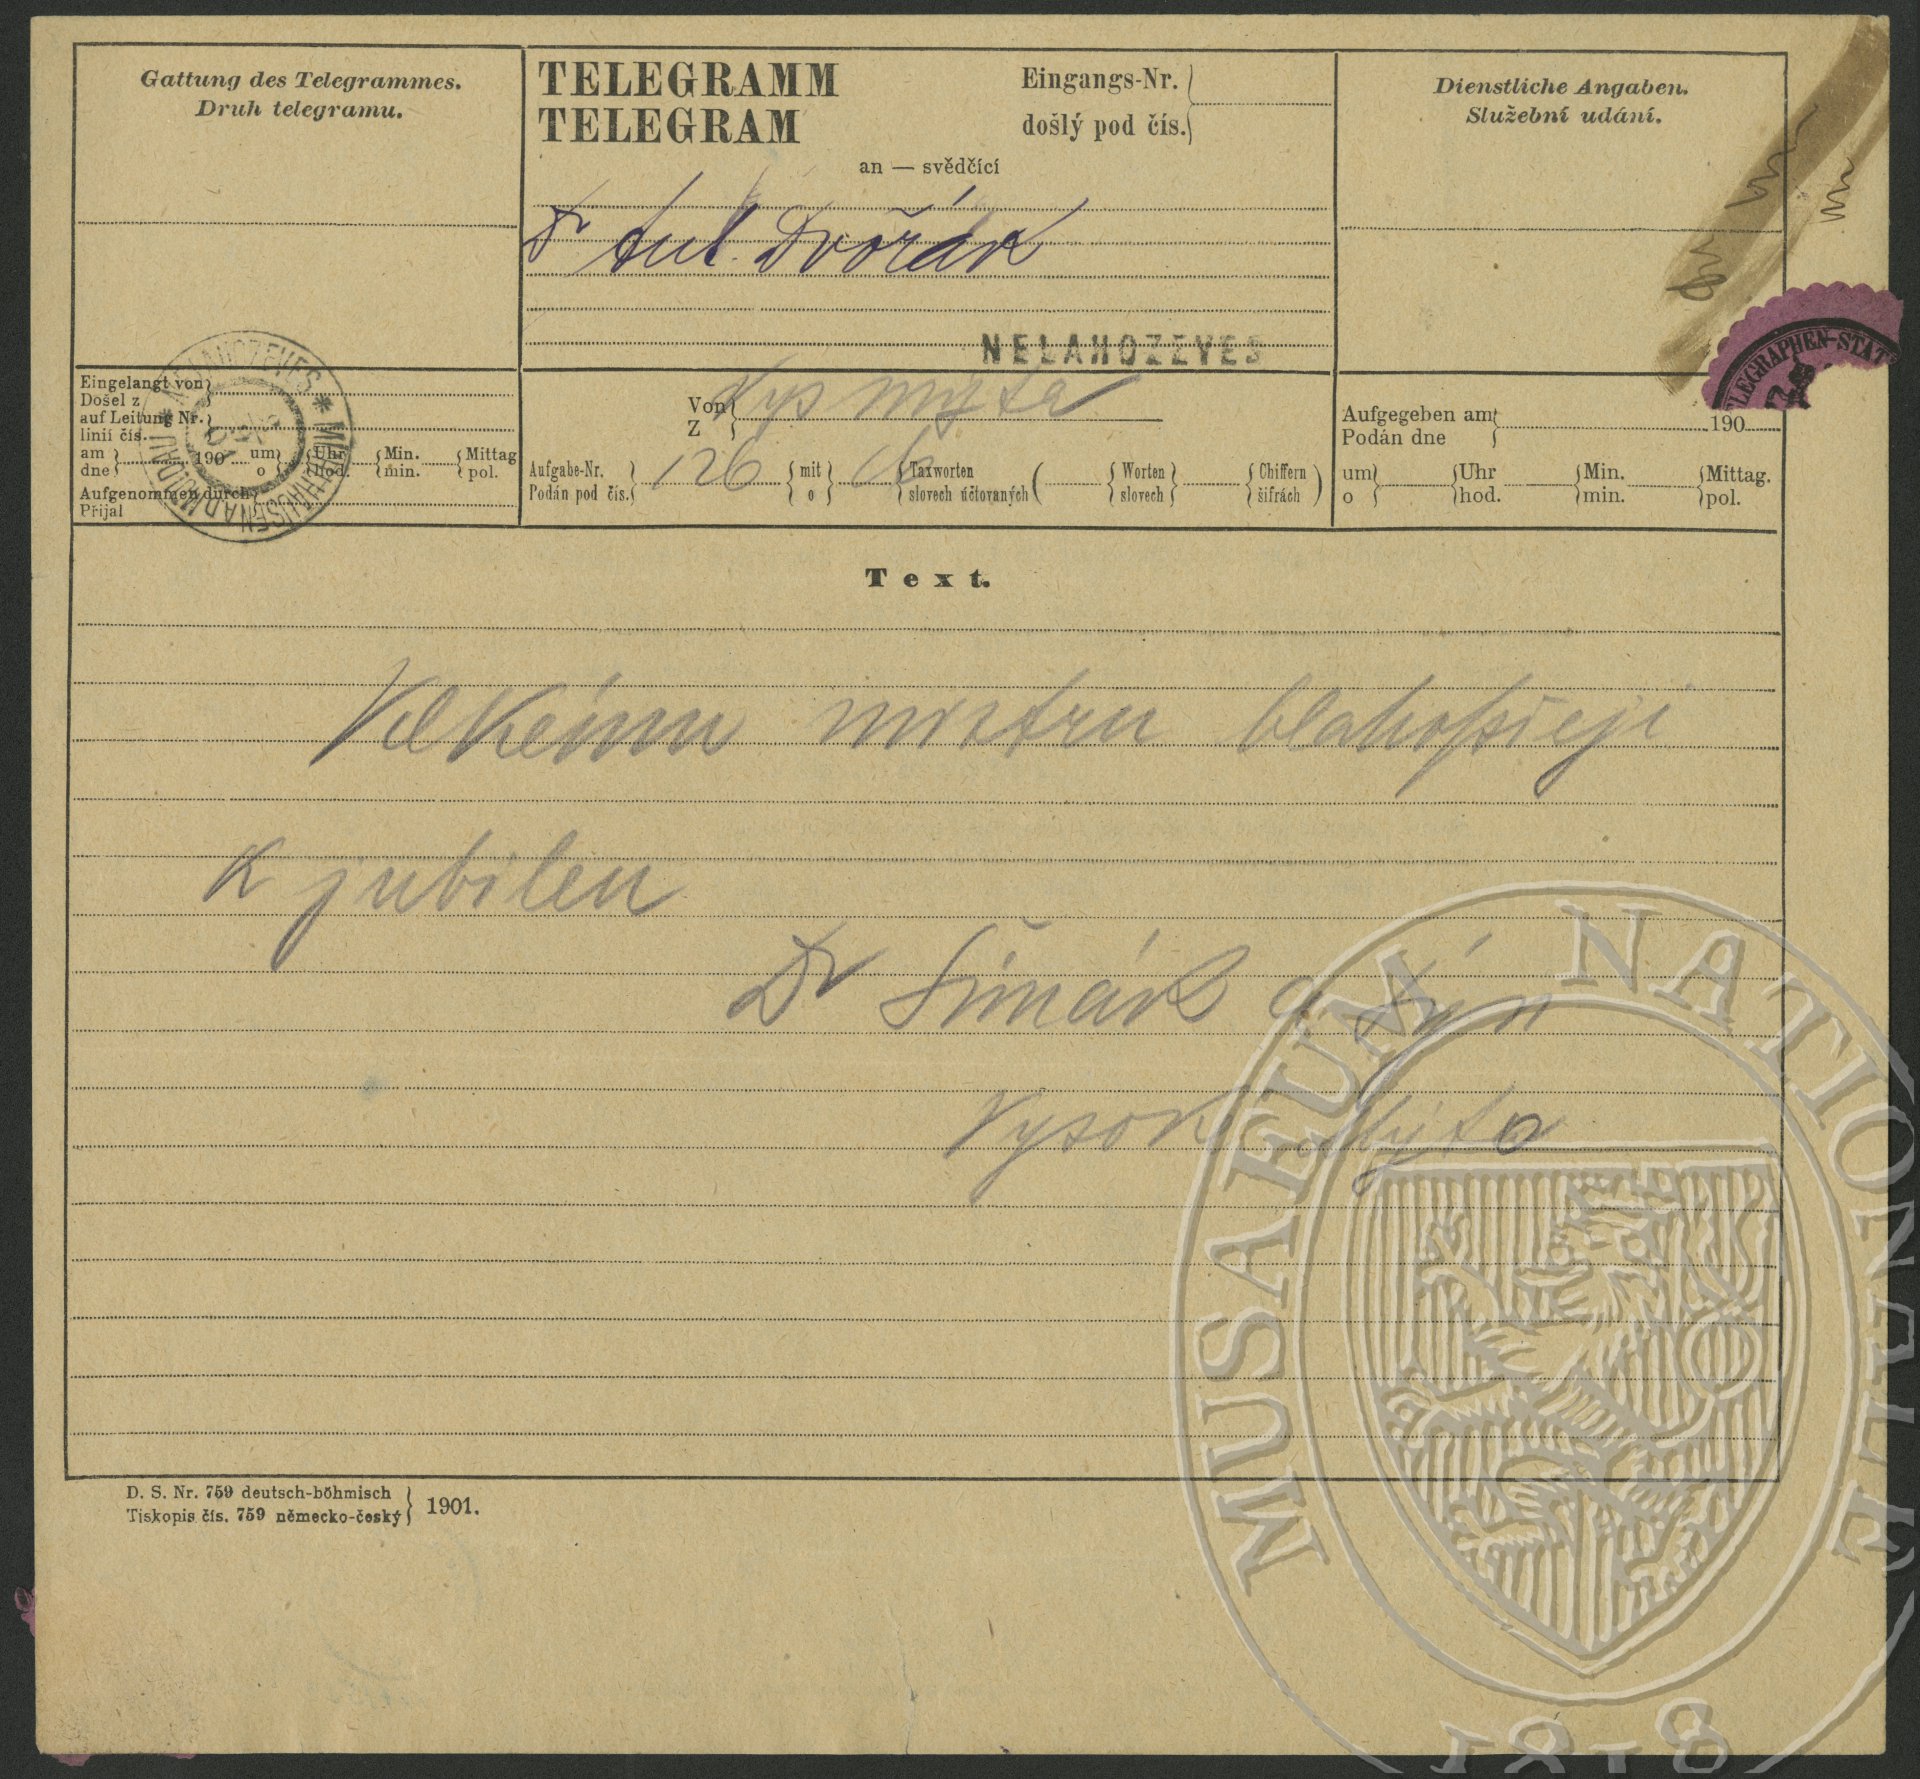 Gattung des Telegrammes.
Druh telegramu.
TELEGRAMM
TELEGRAM
Eingangs-Nr.
došlý pod čís.
an — svědčící
Dr Ant. Dvořák
NELAHOZEVES
Dienstliche Angaben.
Služební udání.
TELEGRAPHEN-STAT
NELAHOZEVES * MÜHLHAUSEN A.D. MOLDAU *
Eingelangt von
Došel z
auf Leitung Nr.
linii čís.
am 190 um Uhr Min. Mittag
dne o hod. min. pol.
Aufgenommen durch
Přijal
Von Vys myta
Z
Aufgabe-Nr. 126 mit 16 Taxworten ( Worten Chiffern )
Podán pod čís. o slovech účtovaných slovech šifrách
Aufgegeben am 190
Podán dne
um Uhr Min. Mittag.
o hod. min. pol.
Text.
Velkému mistru blahopřeji
k jubileu
Dr Šimák a
Vysoké Mýto
D. S. Nr. 759 deutsch-böhmisch
Tiskopis čís. 759 německo-český 1901.
MUSAEUM NATIONALE
1818